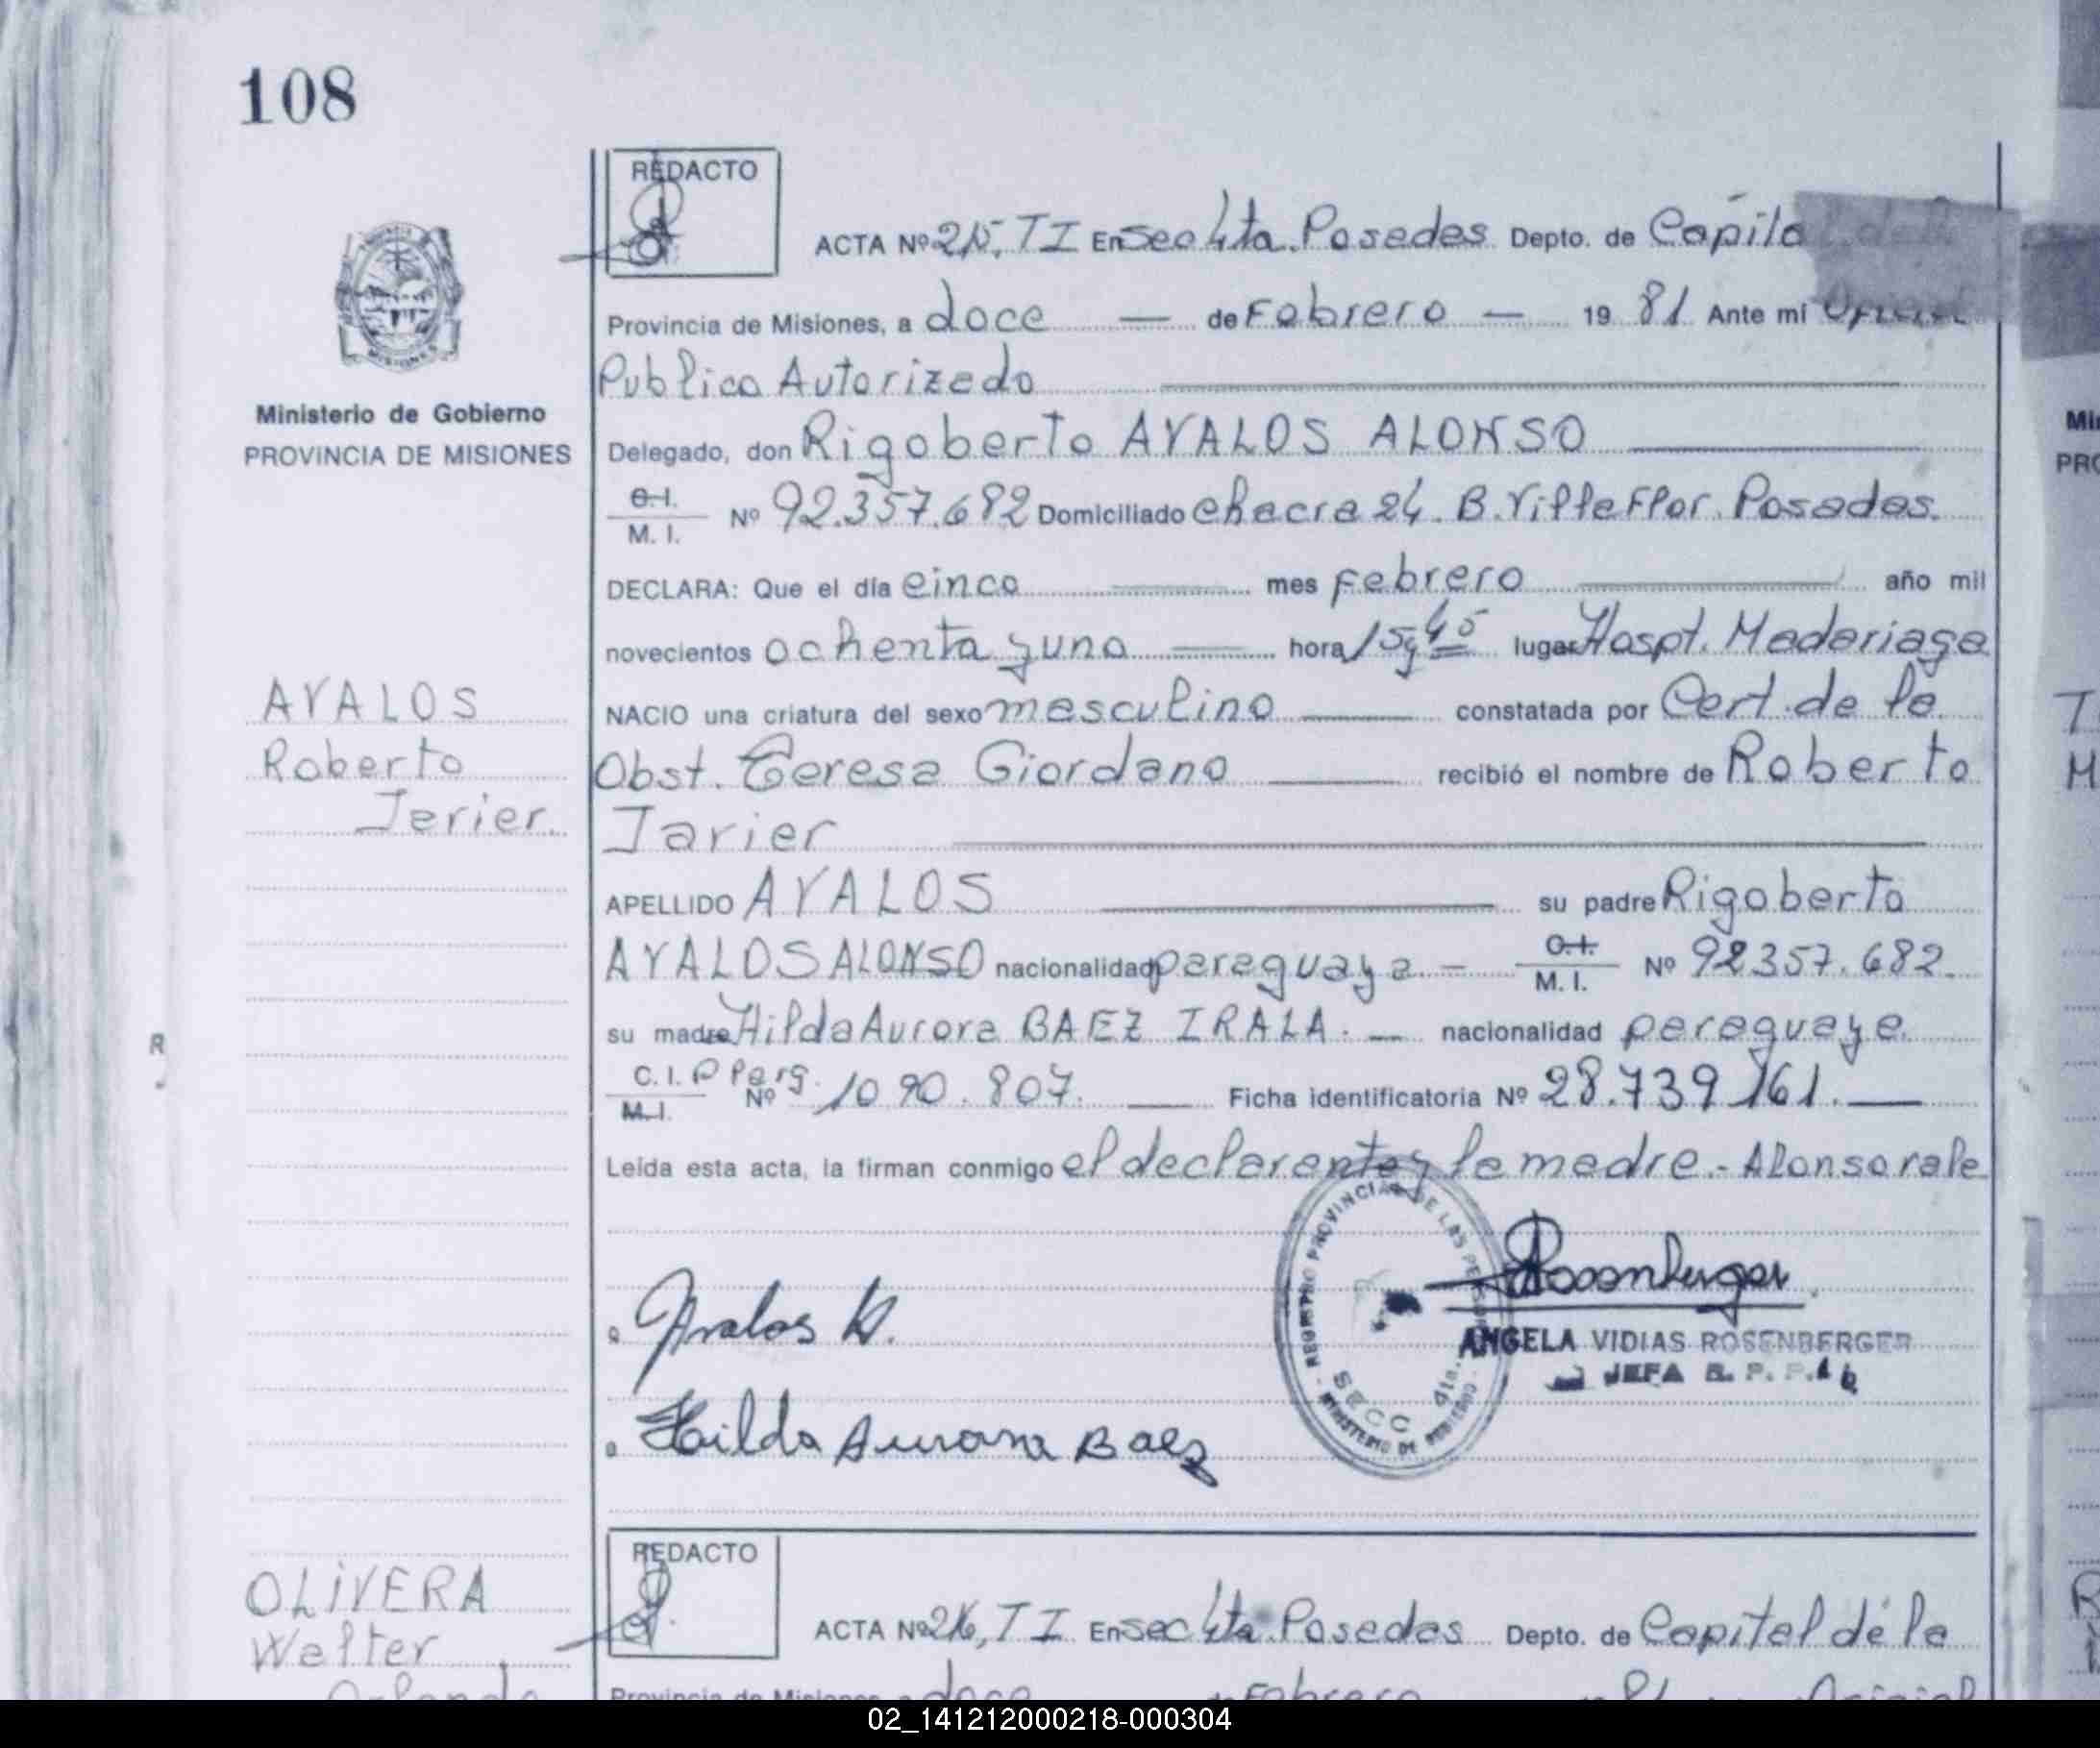 108
REDACTO
ACTA Nº 215, TI En Sec 4ta. Posadas Depto. de Capital
Provincia de Misiones, a doce — de Febrero — 19 81 Ante mí Oficial
Publico Autorizado
Ministerio de Gobierno
PROVINCIA DE MISIONES
Delegado, don Rigoberto AVALOS ALONSO
C.I. M. I. Nº 92.357.682 Domiciliado chacra 24. B. Villa Flor. Posadas.
DECLARA: Que el día cinco mes Febrero año mil
novecientos ochenta y uno hora 15 y 45 lugar Hospt. Madariaga
AVALOS
Roberto
Javier.
NACIO una criatura del sexo masculino constatada por Cert. de la
Obst. Teresa Giordano recibió el nombre de Roberto
Javier
APELLIDO AVALOS su padre Rigoberto
AVALOS ALONSO nacionalidad paraguaya — C.I. M. I. Nº 92357.682.
su madre Hilda Aurora BAEZ IRALA. — nacionalidad paraguaya.
C. I. P Parg. M.I. Nº 1090.807. Ficha identificatoria Nº 28.739.161.
Leída esta acta, la firman conmigo el declarante y la madre.- Alonso vale
Avalos
Hilda Aurora Baez
REGISTRO PROVINCIAL DE LAS PERSONAS
SECC 4ta.
MINISTERIO DE GOBIERNO
Rosenberger
ANGELA VIDIAS ROSENBERGER
JEFA R. P. P.
OLIVERA
Walter
Orlando
REDACTO
ACTA Nº 216, TI En Sec 4ta. Posadas Depto. de Capital de la
Provincia de Misiones, a doce de Febrero 81 Oficial
R
Mi
PRO
T
M
R
02_141212000218-000304